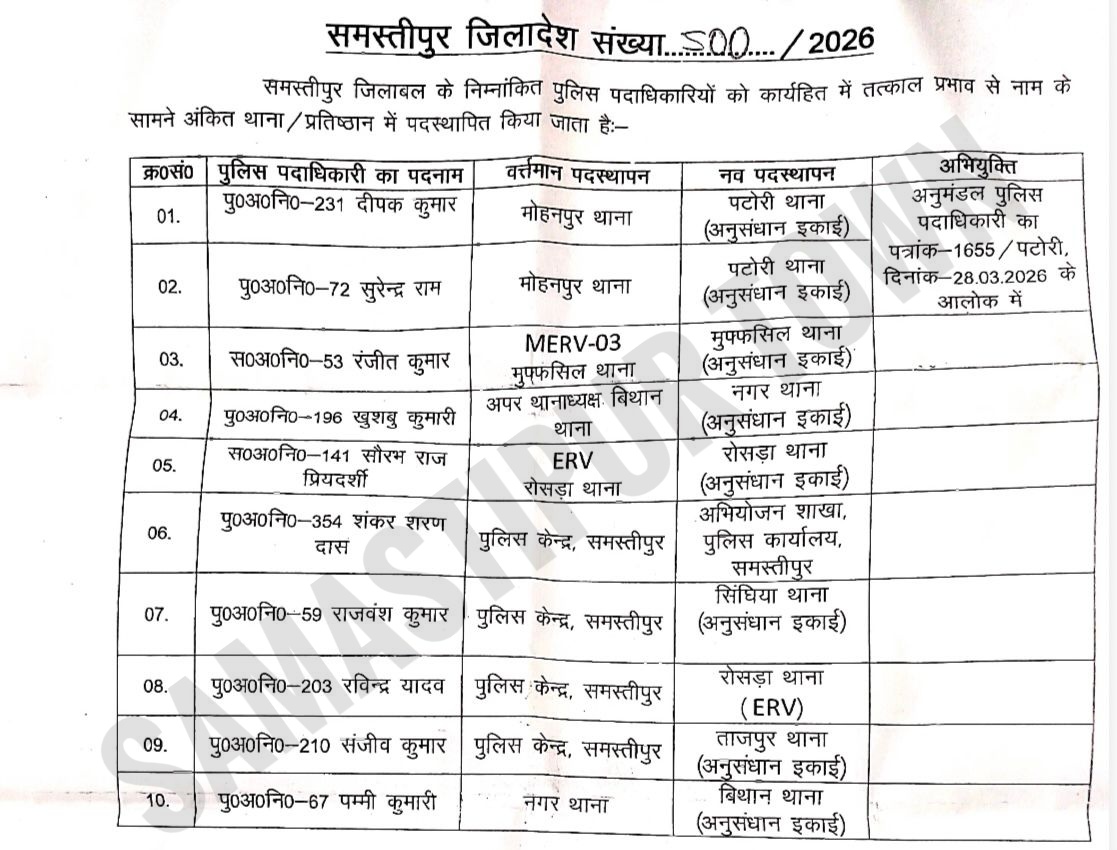 समस्तीपुर जिलादेश संख्या....500..../2026
समस्तीपुर जिलाबल के निम्नांकित पुलिस पदाधिकारियों को कार्यहित में तत्काल प्रभाव से नाम के
सामने अंकित थाना/प्रतिष्ठान में पदस्थापित किया जाता हैः–
क्र0सं0 पुलिस पदाधिकारी का पदनाम वर्त्तमान पदस्थापन नव पदस्थापन अभियुक्ति
01. पु0अ0नि0–231 दीपक कुमार मोहनपुर थाना पटोरी थाना
(अनुसंधान इकाई)
अनुमंडल पुलिस
पदाधिकारी का
पत्रांक–1655/पटोरी,
दिनांक–28.03.2026 के
आलोक में
02. पु0अ0नि0–72 सुरेन्द्र राम मोहनपुर थाना पटोरी थाना
(अनुसंधान इकाई)
03. स0अ0नि0–53 रंजीत कुमार MERV-03
मुफ्फसिल थाना
मुफ्फसिल थाना
(अनुसंधान इकाई)
04. पु0अ0नि0–196 खुशबु कुमारी अपर थानाध्यक्ष बिथान
थाना
नगर थाना
(अनुसंधान इकाई)
05. स0अ0नि0–141 सौरभ राज
प्रियदर्शी
ERV
रोसड़ा थाना
रोसड़ा थाना
(अनुसंधान इकाई)
06. पु0अ0नि0–354 शंकर शरण
दास
पुलिस केन्द्र, समस्तीपुर
अभियोजन शाखा,
पुलिस कार्यालय,
समस्तीपुर
07. पु0अ0नि0–59 राजवंश कुमार पुलिस केन्द्र, समस्तीपुर सिंघिया थाना
(अनुसंधान इकाई)
08. पु0अ0नि0–203 रविन्द्र यादव पुलिस केन्द्र, समस्तीपुर रोसड़ा थाना
(ERV)
09. पु0अ0नि0–210 संजीव कुमार पुलिस केन्द्र, समस्तीपुर ताजपुर थाना
(अनुसंधान इकाई)
10. पु0अ0नि0–67 पम्मी कुमारी नगर थाना बिथान थाना
(अनुसंधान इकाई)
SAMASTIPUR TOWN